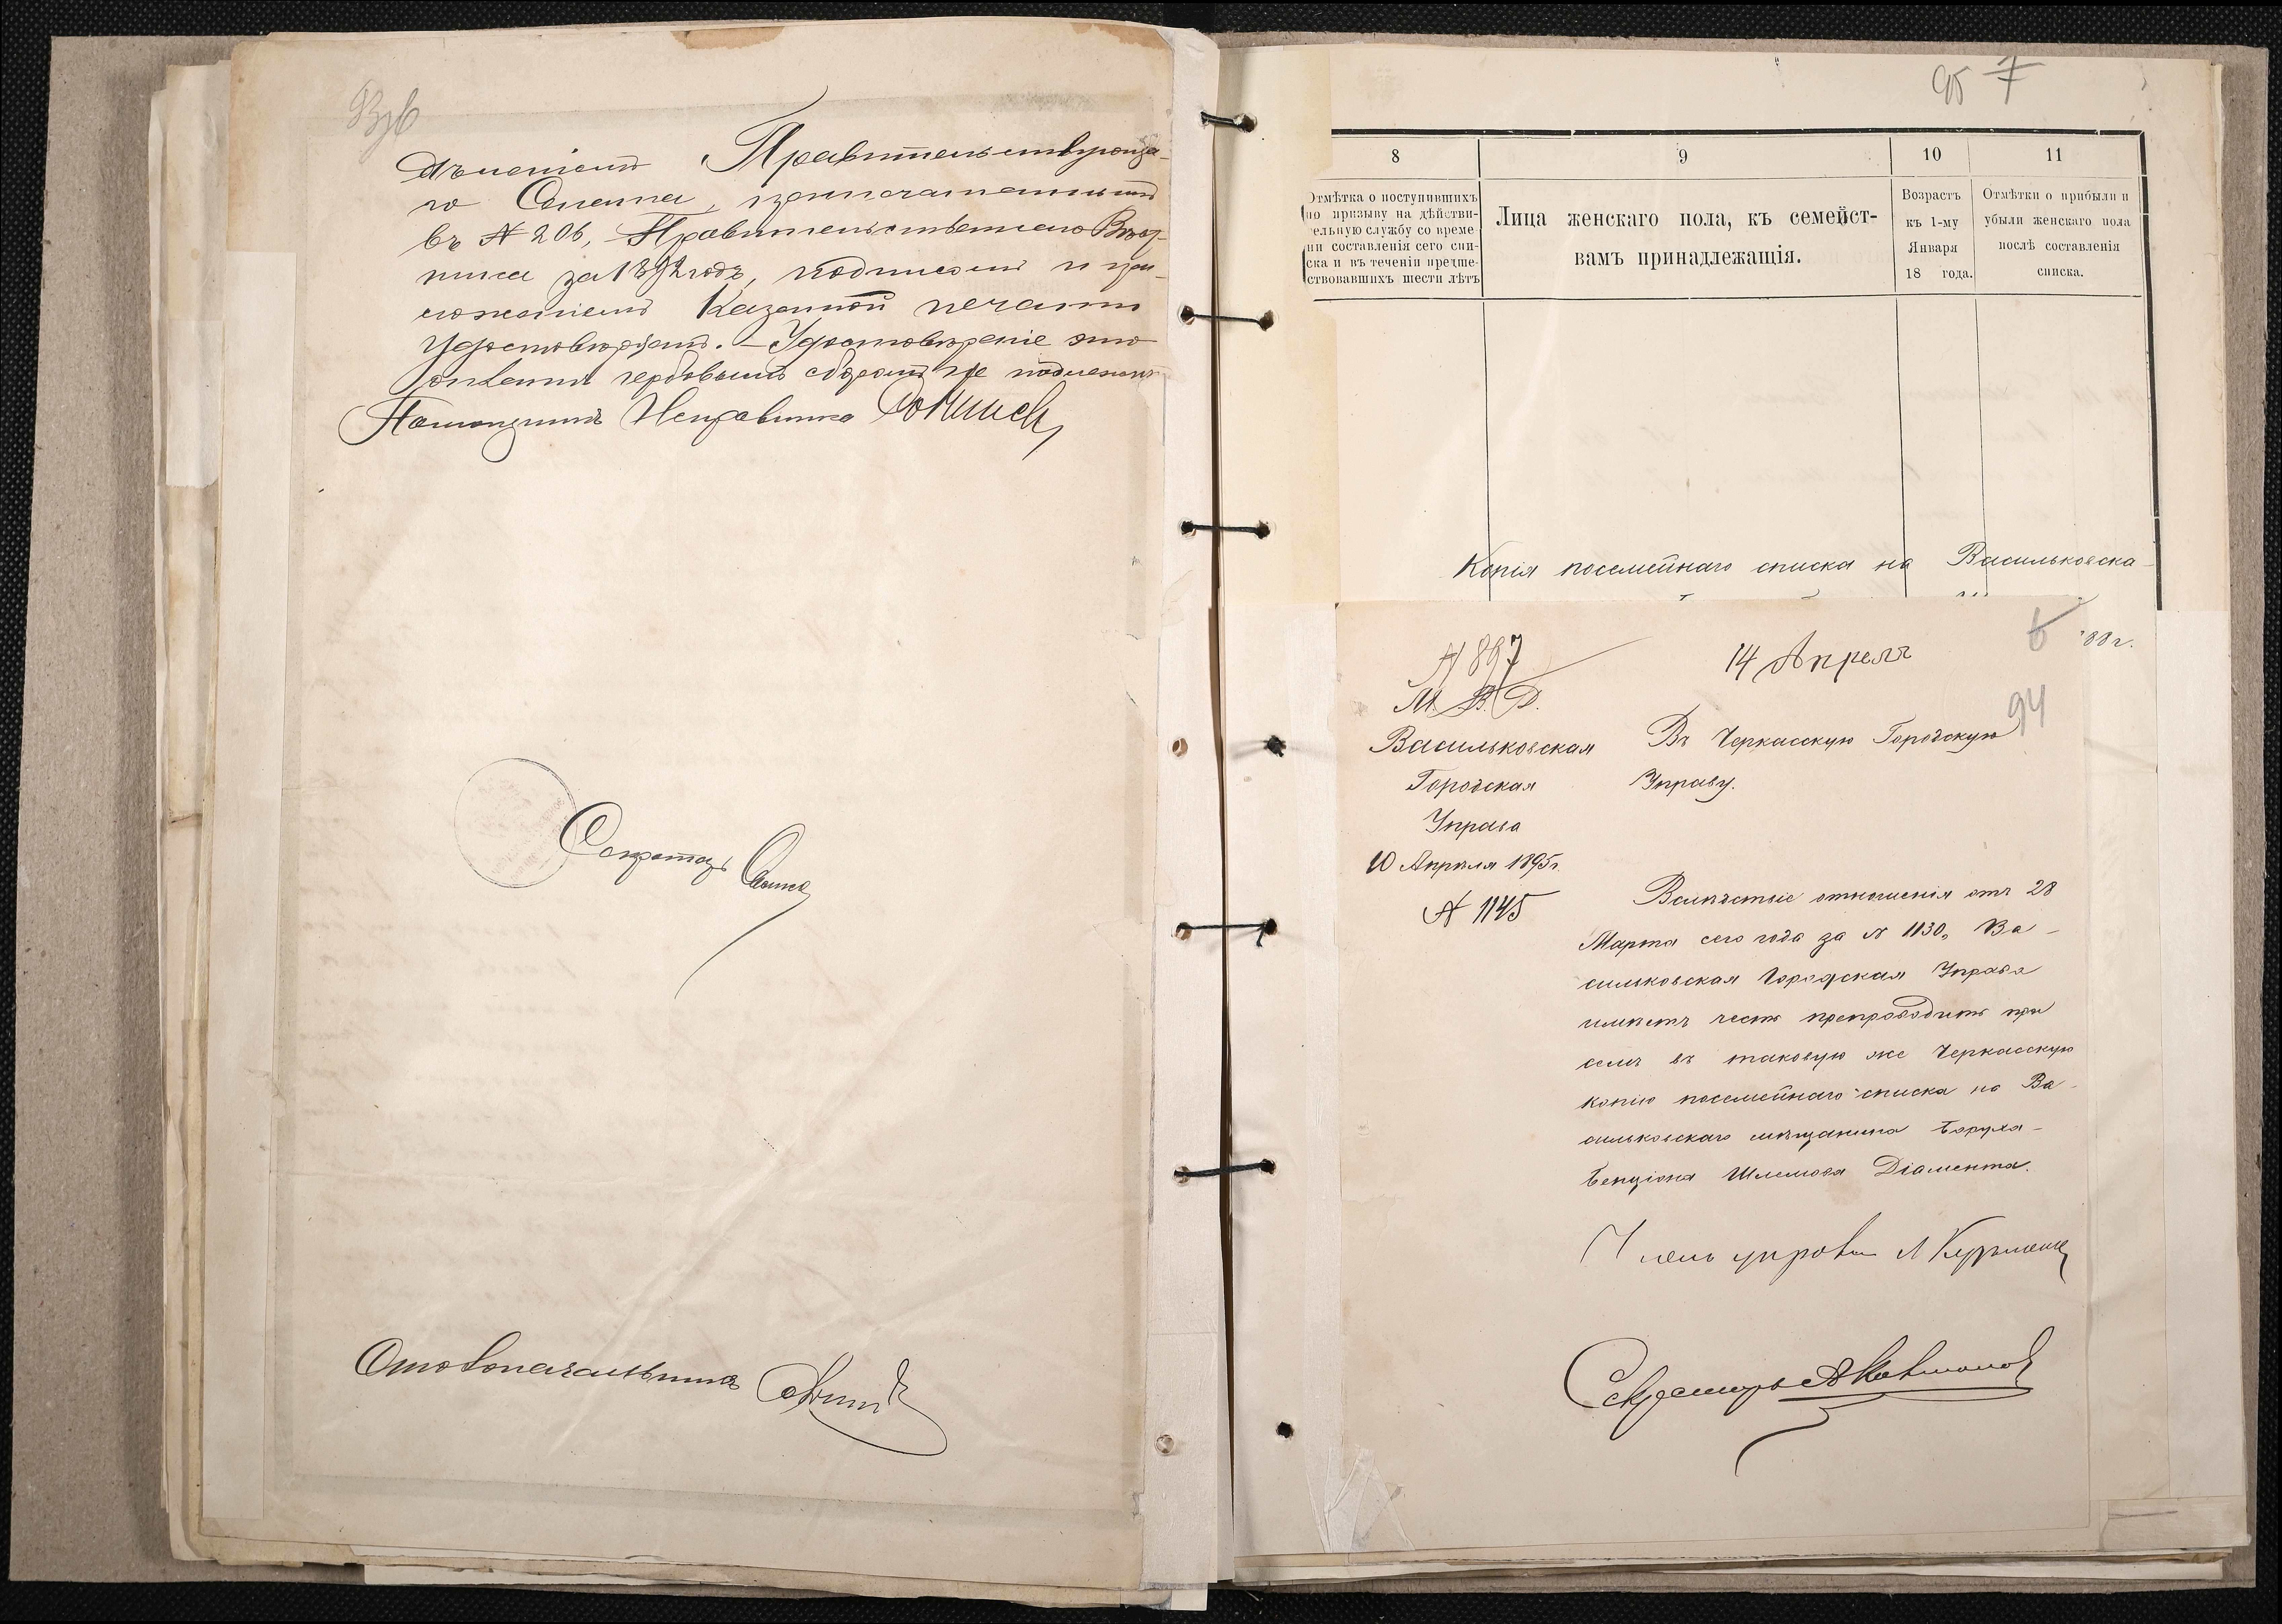 93об
дѣленiемъ Правительствующа-
го Сената, пропечатаннымъ
въ № 206, Правительственнаго Вѣст-
ника за 1892 годъ, подписомъ и при-
ложенiемъ Казенной печати
удостовѣряетъ. – Удостовѣренiе это
оплатѣ гербовымъ сборомъ не подлежитъ
Помощникъ Исправника
Секретарь
Столоначальникъ
95 7
8 9 10 11
Отмѣтка о поступившихъ
по призыву на дѣйстви-
тельную службу со време-
ни составленія сего спи-
ска и въ теченіи предше-
ствовавшихъ шести лѣтъ
Лица женскаго пола, къ семейст-
вамъ принадлежащія.
Возрастъ
къ 1-му
Января
18 года.
Отмѣтки о прибыли и
убыли женскаго пола
послѣ составленія
списка.
Копія посемейнаго списка на Васильковска-
88 г.
6
№ 897
14 Апреля
94
М. В. Д.
Васильковская
Городская
Управа
10 Апрѣля 1895 г.
№ 1145
Въ Черкасскую Городскую
Управу.
Вслѣдствіе отношенія отъ 28
Марта сего года за № 1130, Ва-
сильковская Городская Управа
имѣетъ честь препроводить при
семъ въ таковую же Черкасскую
копію посемейнаго списка на Ва-
сильковскаго мѣщанина Боруха-
Бенціона Шлемова Діамента.
Членъ управы
Секретарь